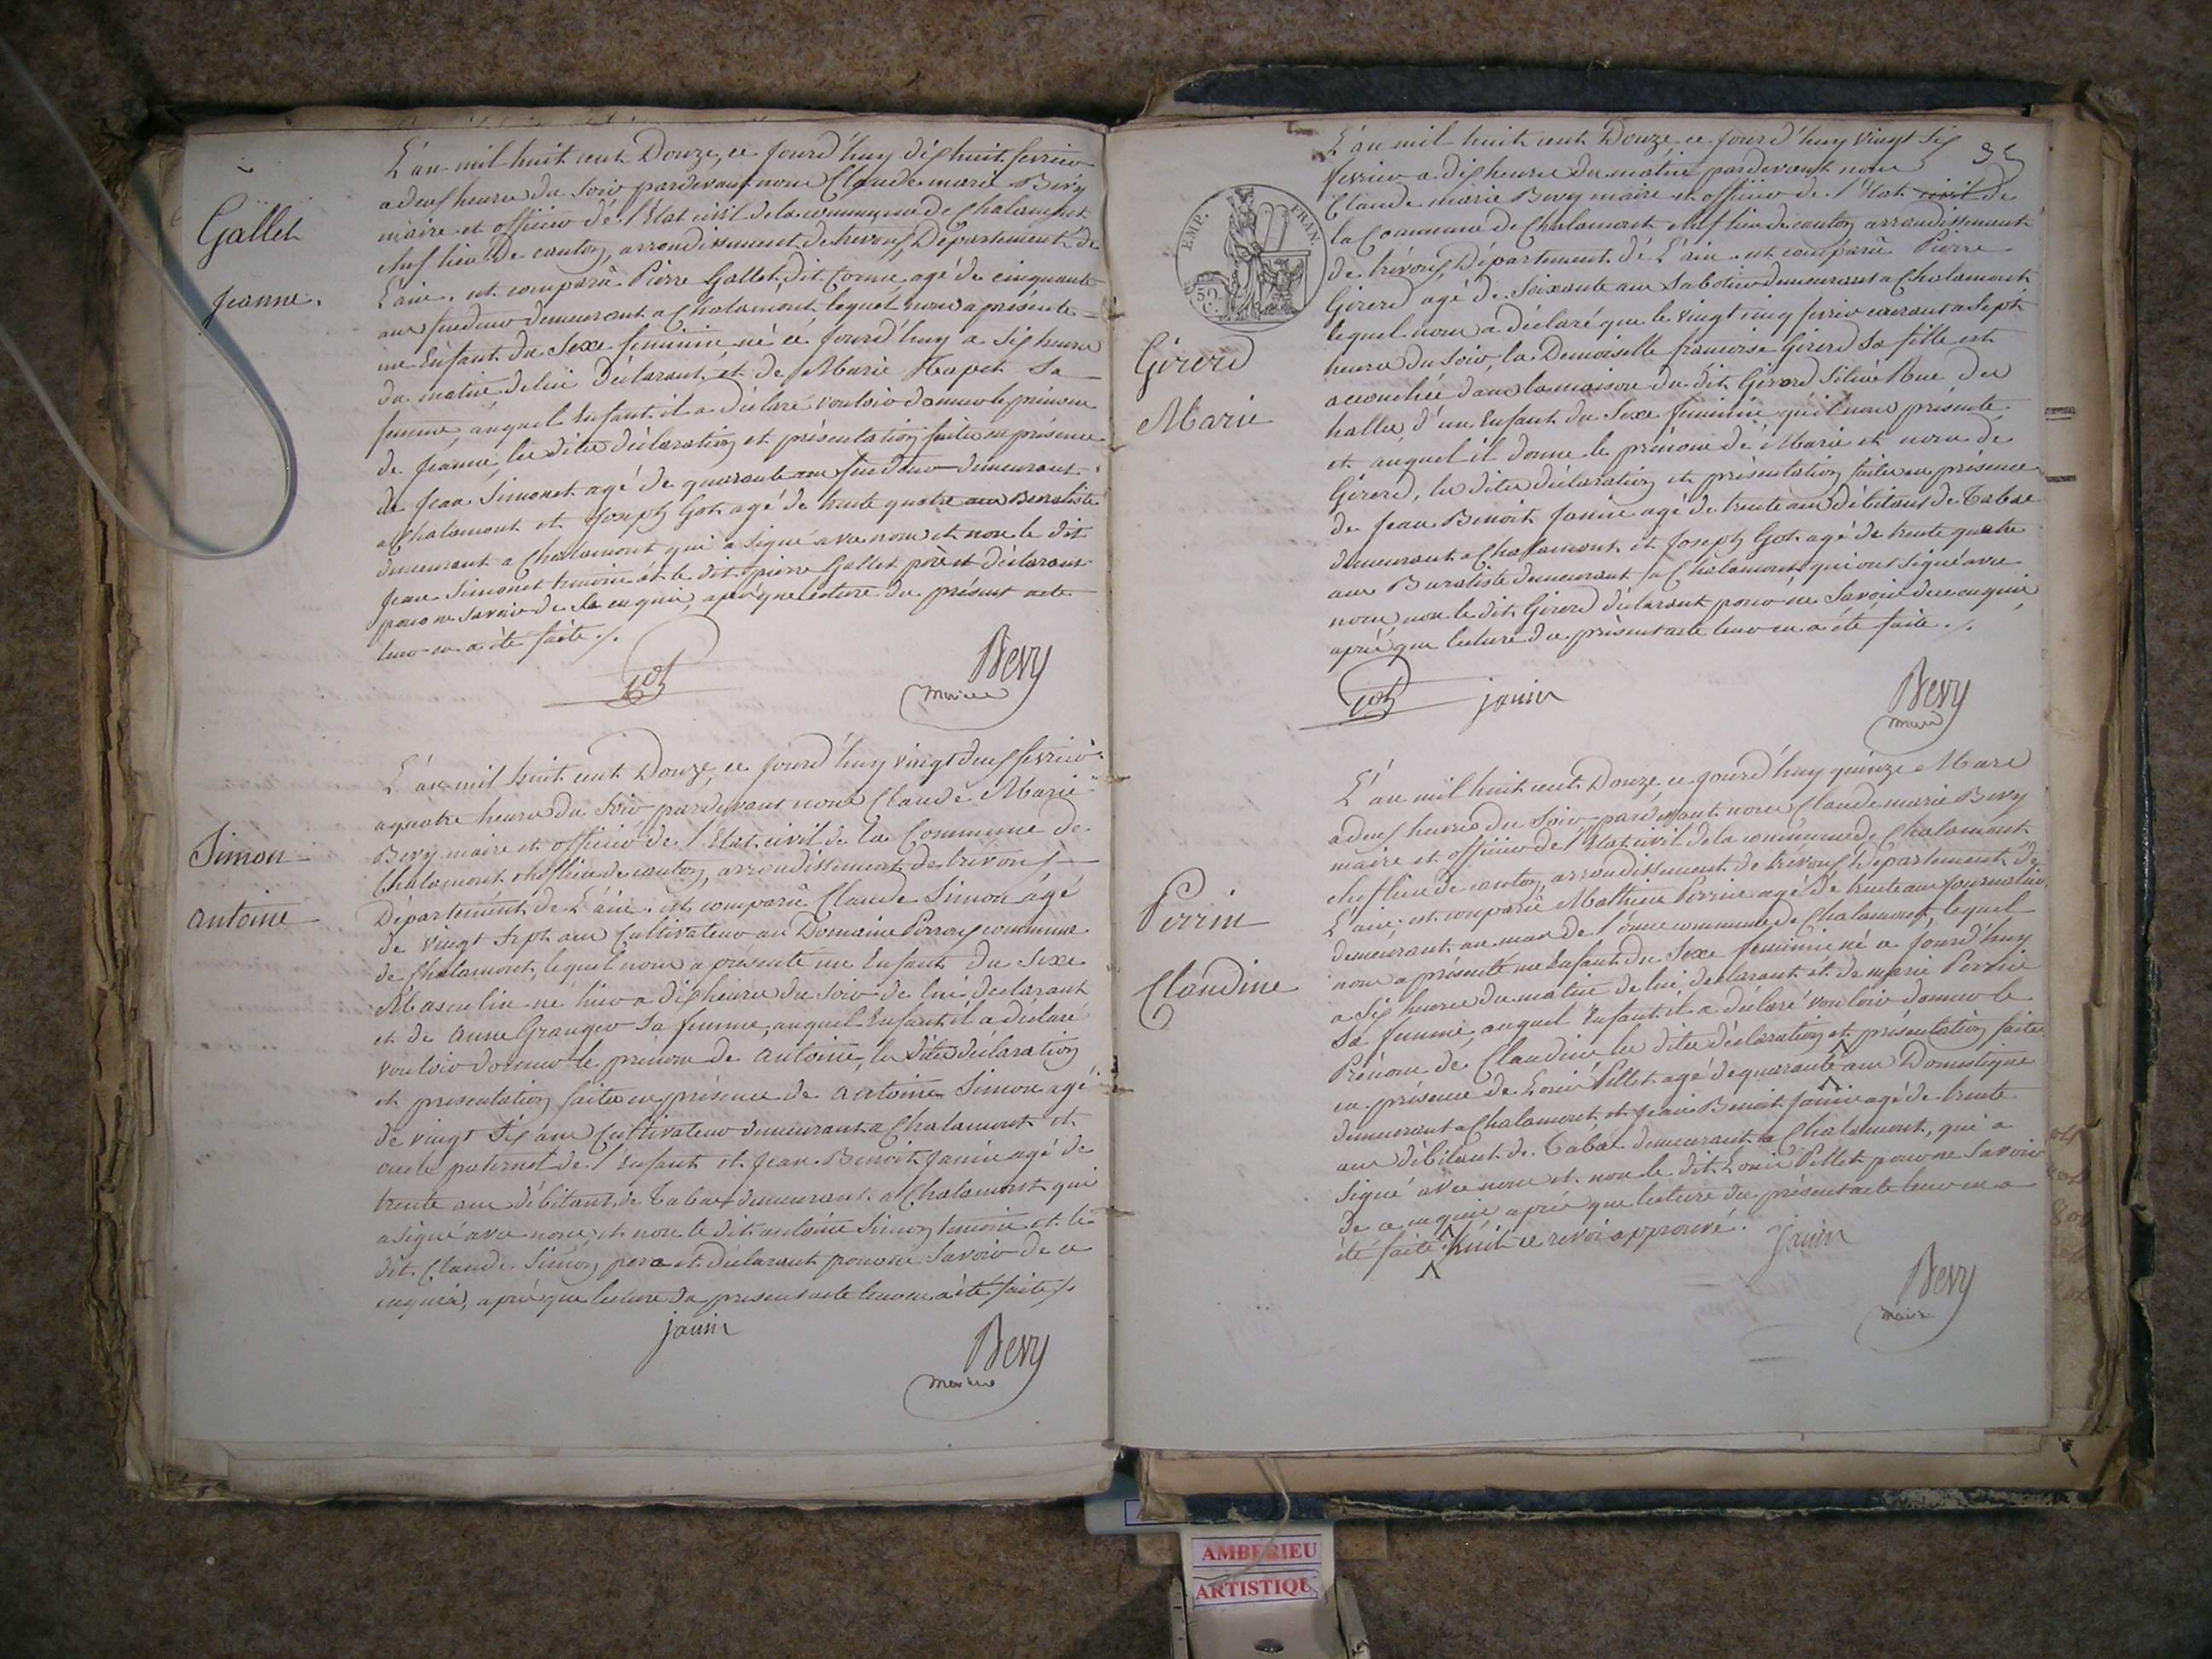 Gallet
Jeanne.
L'an mil huit cent Douze, ce Jourd'huy dixhuit fevrier
a deux heures du soir pardevant nous Claude marie Bevy
maire et officier de l'Etat civil de la commune de Chalamont
chef lieu de canton, arrondissement de trevoux, Departement de
L'ain. est comparû Pierre Gallet, dit agé de cinquante
ans demeurant a Chalamont, lequel nous a présenté
un Enfant du Sexe feminin né cé Jourd'huy a six heures
du matin de lui Déclarant, et de Marie Sa
femme, auquel Enfant il a déclaré vouloir donner le prénom
de Jeanne, les dites déclaration et présentation faites en présence
de Jean Simonet agé de quarante ans demeurant
a Chalamont et Joseph Got agé de trente quatre ans Buraliste
demeurant a Chalamont qui a signé avec nous et non le dit
Jean Simonet temoin et le dit pierre Gallet père et déclarant
pour ne savoir de ce enquis, après que lecture du présent acte
leur en a été faite ./.
Got
Bevy
maire
Simon
antoine
L'an mil huit cent Douze, ce Jourd'huy vingt deux fevrier
a quatre heures du Soir pardevant nous Claude Marie
Bevy maire et officier de l'Etat civil de la Commune de
Chalamont chef lieu de canton, arrondissement de trévoux
Département de L'ain. est comparû Claude Simon agé
de vingt sept ans Cultivateur au Domaine Perroux commune
de Chalamont, lequel nous a présenté un Enfant du Sexe
Masculin né hier a dix heures du soir de lui declarant
et de Anne Granger Sa femme, auquel Enfant il a declaré
vouloir donner le prénom de antoine, les dites déclaration
et presentation faites en présence de antoine Simon agé
de vingt six ans Cultivateur demeurant a Chalamont et
oncle paternel de l'Enfant et Jean Benoit Janin agé de
trente ans débitant de Tabac demeurant a Chalamont qui
a signé avec nous, et non le dit antoine Simon temoin et le
dit Claude Simon pere et declarant pour ne Savoir de ce
enquis, après que lecture du present acte leur en a été faite ./.
janin
Bevy
maire
35
EMP. FRAN.
50 C.
Girerd
Marie
L'an mil huit cent Douze, ce Jourd'huy vingt six
fevrier a dix heures du matin pardevant nous
Claude marie Bevy maire et officier de l'Etat civil de
la Commune de Chalamont chef lieu de canton arrondissement
de trévoux, Département de L'ain. est comparû Pierre
Girerd agé de soixante ans Sabotier demeurant a Chalamont
lequel nous a déclaré que le vingt cinq fevrier courant a Sept
heures du Soir, la Demoiselle francoise Girerd Sa fille est
accouchée dans la maison du dit Girerd Située Rue des
halles, d'un Enfant du Sexe feminin qu'il nous présente
et auquel il donne le prénom dé Marie et nom de
Girerd, les dites déclaration et présentation faites en présence
de Jean Benoit Janin agé de trente ans débitant de Tabac
demeurant a Chalamont et Joseph Got agé de trente quatre
ans Buraliste demeurant a Chalamont qui ont signé avec
nous non le dit Girerd déclarant pour ne Savoir de ce enquis
après que lecture du présent acte leur en a été faite ./.
Got
janin
Bevy
maire
Perrin
Claudine
L'an mil huit cent Douze ce jourd'huy quinze Mars
a deux heures du soir pardevant nous Claude marie Bevy
maire et officier de l'Etat civil de la commune de Chalamont
chef lieu de canton, arrondissement de trévoux, Département de
L'ain, est comparû Mathieu Perrin agé de trente ans Journalier
demeurant au mas de commune de Chalamont, lequel
nous a présenté un Enfant du Sexe feminin né ce Jourd'huy
a Six heures du matin de lui declarant et de marie Perrin
Sa femme, auquel Enfant il a déclaré vouloir donner le
Prénom de Claudine les dites déclaration et présentation faites
en présence de Louis Pellet agé de quarante ans Domestique
demeurant a Chalamont, et Jean Benoit Janin agé de trente
ans débitant de Tabac demeurant a Chalamont, qui a
signé avec nous et non le dit Louis Pellet pour ne Savoir
de ce enquis après que lecture du présent acte leur en a
été faite. huit ce renvoi approuvé.
janin
Bevy
maire
AMBERIEU
ARTISTIQU